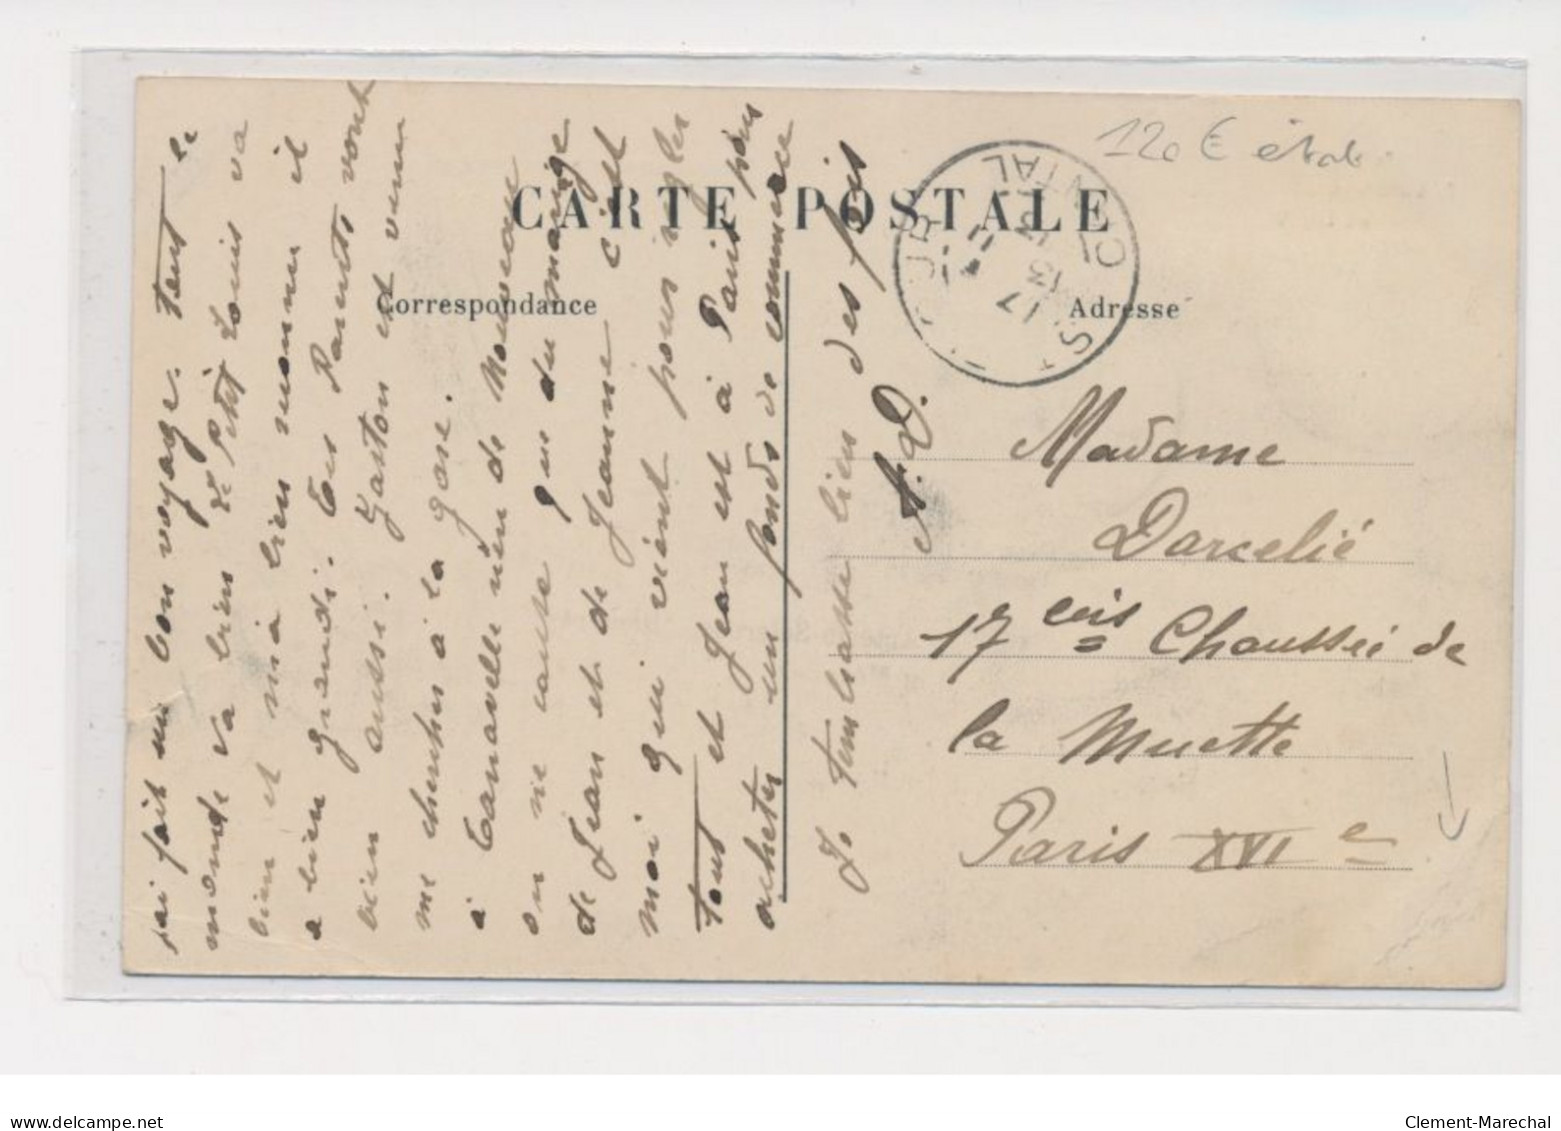 120 €
CARTE POSTALE
Correspondance
Adresse
j'ai fait un bon voyage. Tout le
monde va bien le Petit Louis va
bien et m'a bien nommer il
a bien grandi. Tes Parents vont
bien aussi. Gaston est venu
me chercher à la gare.
à Canavelle rien de Nouveau
on ne cause que du mariage
de Jean et de Jeanne c'est
moi qui vient pour régler
tout et Jean est à Paris pour
acheter un fonds de commerce
Je t'embrasse bien des fois
A.D.
Madame
Darcelié
17 bis Chaussée de
la Muette
Paris XVIe
www.delcampe.net
Clement-Marechal